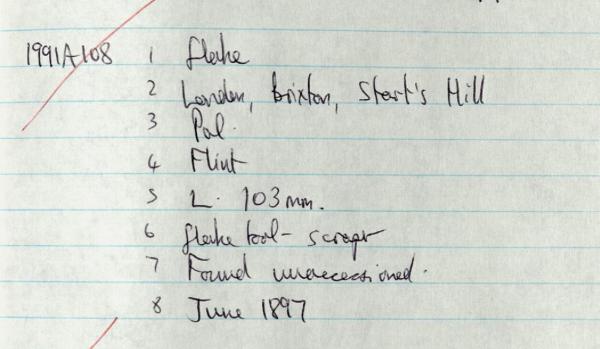 1991A108 1 flake
2 London, Brixton, Start's Hill
3 Pal.
4 Flint
5 L. 103mm.
6 flake tool - scraper
7 Found unaccessioned.
8 June 1897